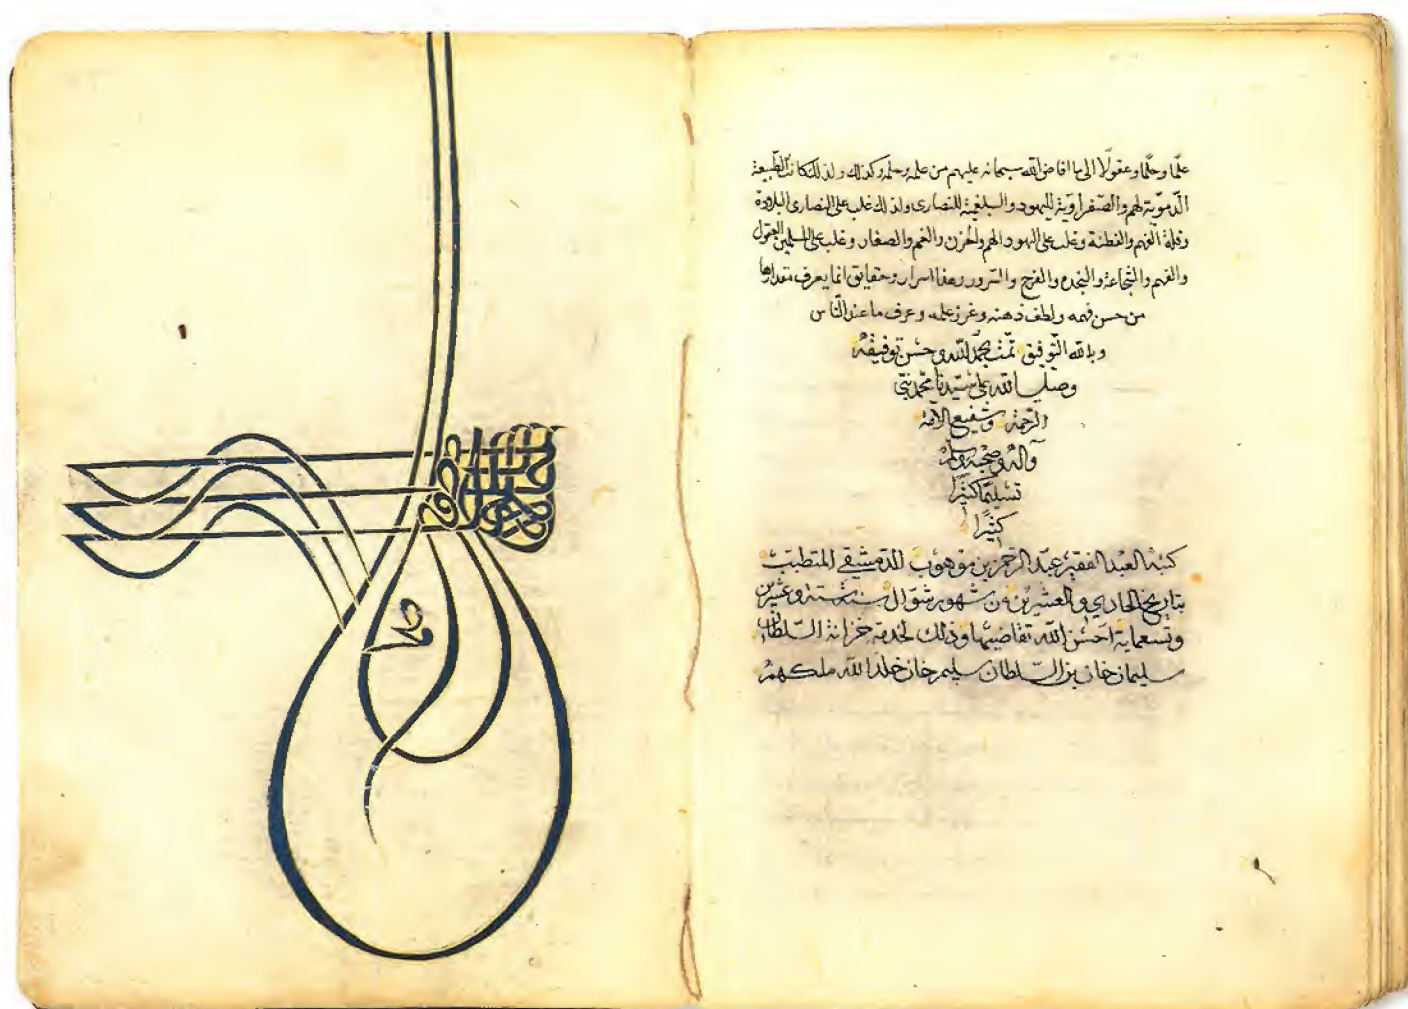 علمًا وحلمًا وعقولًا الى ما افاض الله سبحانه عليهم من علمه وحلمه وكذلك ولذلك كانت الطبيعة
الدموية لهم والصفراوية لليهود والبلغمية للنصارى ولذلك غلب على النصارى البلادة
وقلة الفهم والفطنة وغلب على اليهود الهم والحزن والغم والصغار وغلب على المسلمين العقول
والفهم والشجاعة والنجدة والفرح والسرور وهذا اسرار وحقايق انما يعرف مقدارها
من حسن فهمه ولطف ذهنه وغزر علمه وعرف ما عند الناس
وبالله التوفيق تمت بحمد الله وحسن توفيقه
وصلى الله على سيدنا محمد نبي
الرحمة وشفيع الامة
وآله وصحبه وسلم
تسليمًا كثيرًا
كثيرًا
كتبه العبد الفقير عبد الرحمن بن موهوب الدمشقي المتطبب
بتاريخ الحادي والعشرين من شهور شوال سنة ستة وعشرين
وتسعماية احسن الله تقاضيها وذلك لخدمة خزانة السلطان
سليمان خان بن السلطان سليم خان خلد الله ملكهم